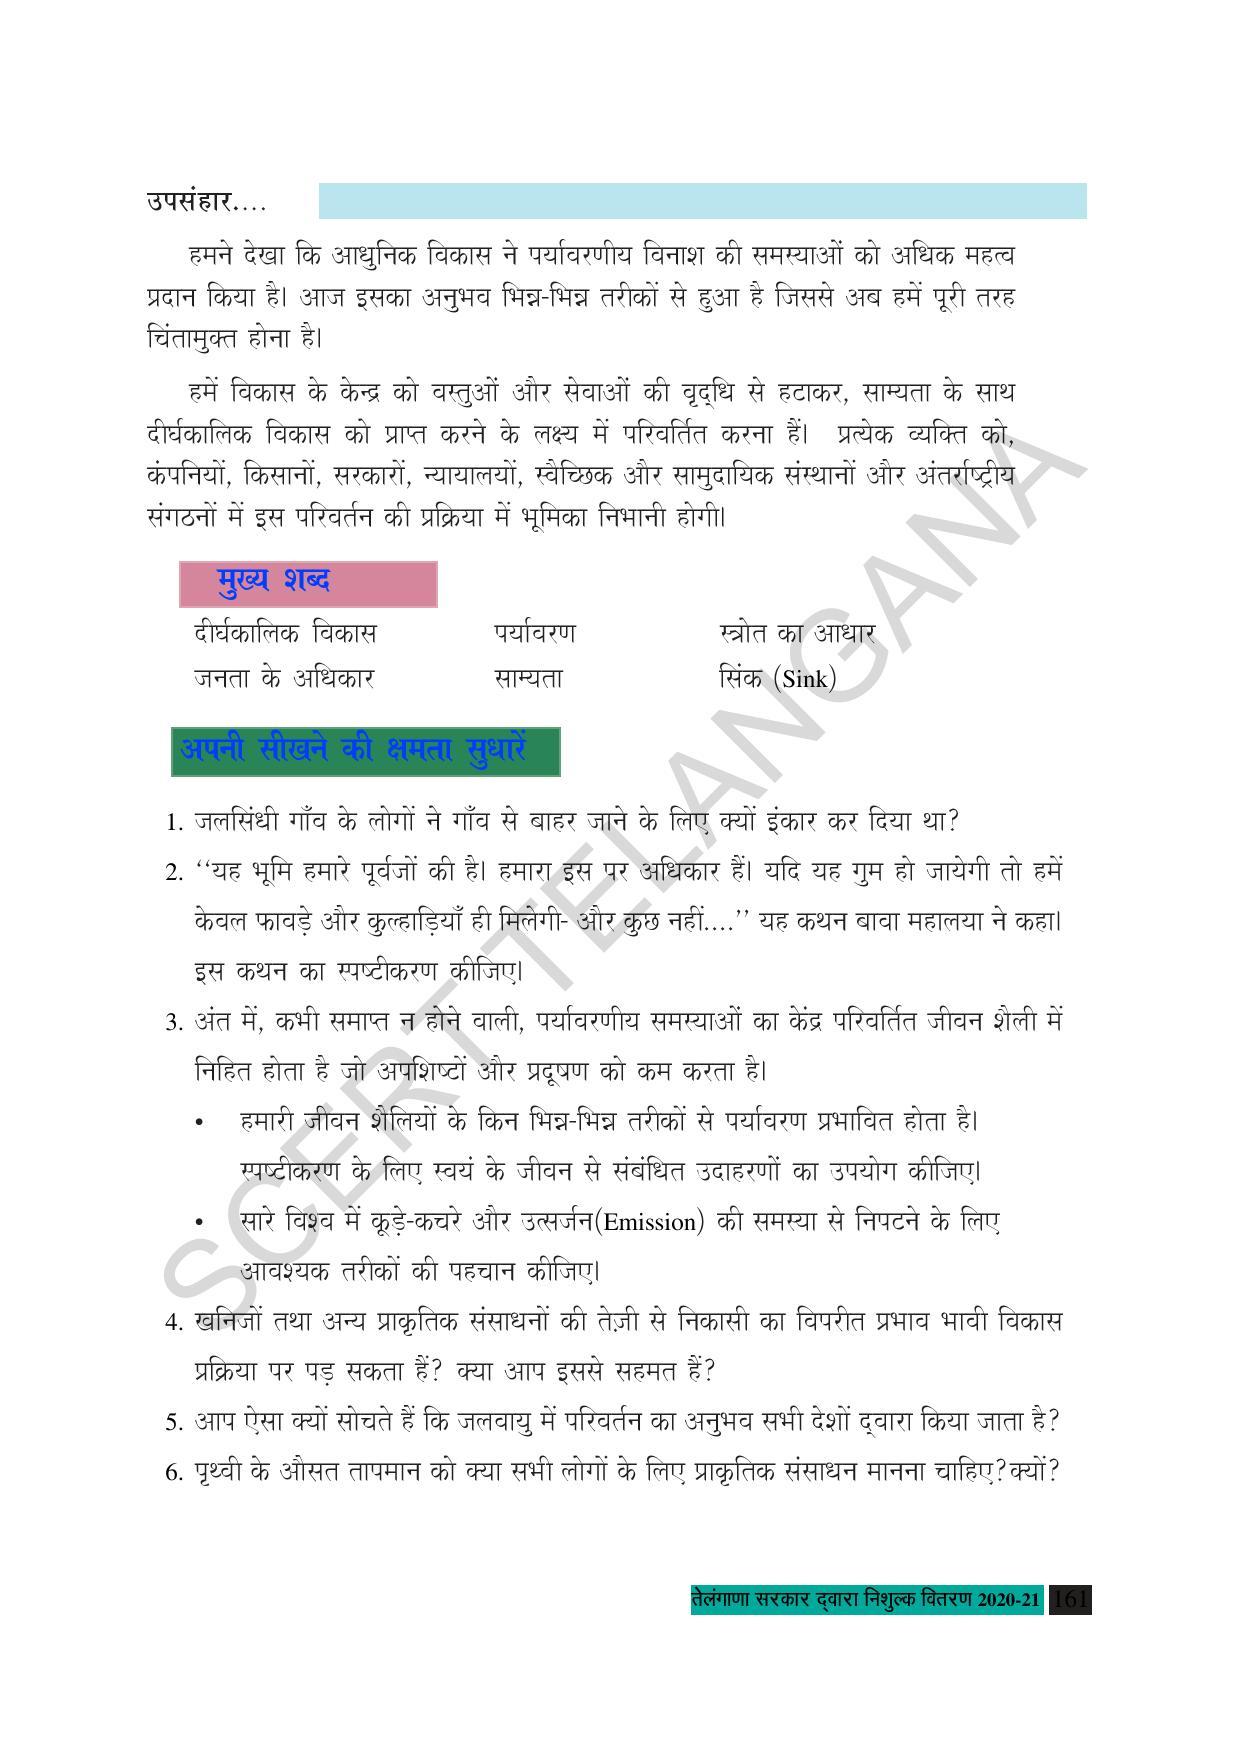 उपसंहार....
हमने देखा कि आधुनिक विकास ने पर्यावरणीय विनाश की समस्याओं को अधिक महत्व
प्रदान किया है। आज इसका अनुभव भिन्न-भिन्न तरीकों से हुआ है जिससे अब हमें पूरी तरह
चिंतामुक्त होना है।
हमें विकास के केन्द्र को वस्तुओं और सेवाओं की वृद्धि से हटाकर, साम्यता के साथ
दीर्घकालिक विकास को प्राप्त करने के लक्ष्य में परिवर्तित करना हैं। प्रत्येक व्यक्ति को,
कंपनियों, किसानों, सरकारों, न्यायालयों, स्वैच्छिक और सामुदायिक संस्थानों और अंतर्राष्ट्रीय
संगठनों में इस परिवर्तन की प्रक्रिया में भूमिका निभानी होगी।
मुख्य शब्द
दीर्घकालिक विकास पर्यावरण स्त्रोत का आधार
जनता के अधिकार साम्यता सिंक (Sink)
अपनी सीखने की क्षमता सुधारें
1. जलसिंधी गाँव के लोगों ने गाँव से बाहर जाने के लिए क्यों इंकार कर दिया था?
2. ‘‘यह भूमि हमारे पूर्वजों की है। हमारा इस पर अधिकार हैं। यदि यह गुम हो जायेगी तो हमें
केवल फावड़े और कुल्हाड़ियाँ ही मिलेगी- और कुछ नहीं....’’ यह कथन बावा महालया ने कहा।
इस कथन का स्पष्टीकरण कीजिए।
3. अंत में, कभी समाप्त न होने वाली, पर्यावरणीय समस्याओं का केंद्र परिवर्तित जीवन शैली में
निहित होता है जो अपशिष्टों और प्रदूषण को कम करता है।
• हमारी जीवन शैलियों के किन भिन्न-भिन्न तरीकों से पर्यावरण प्रभावित होता है।
स्पष्टीकरण के लिए स्वयं के जीवन से संबंधित उदाहरणों का उपयोग कीजिए।
• सारे विश्व में कूड़े-कचरे और उत्सर्जन(Emission) की समस्या से निपटने के लिए
आवश्यक तरीकों की पहचान कीजिए।
4. खनिजों तथा अन्य प्राकृतिक संसाधनों की तेज़ी से निकासी का विपरीत प्रभाव भावी विकास
प्रक्रिया पर पड़ सकता हैं? क्या आप इससे सहमत हैं?
5. आप ऐसा क्यों सोचते हैं कि जलवायु में परिवर्तन का अनुभव सभी देशों द्वारा किया जाता है?
6. पृथ्वी के औसत तापमान को क्या सभी लोगों के लिए प्राकृतिक संसाधन मानना चाहिए?क्यों?
SCERT TELANGANA
तेलंगाणा सरकार द्वारा निशुल्क वितरण 2020-21 161